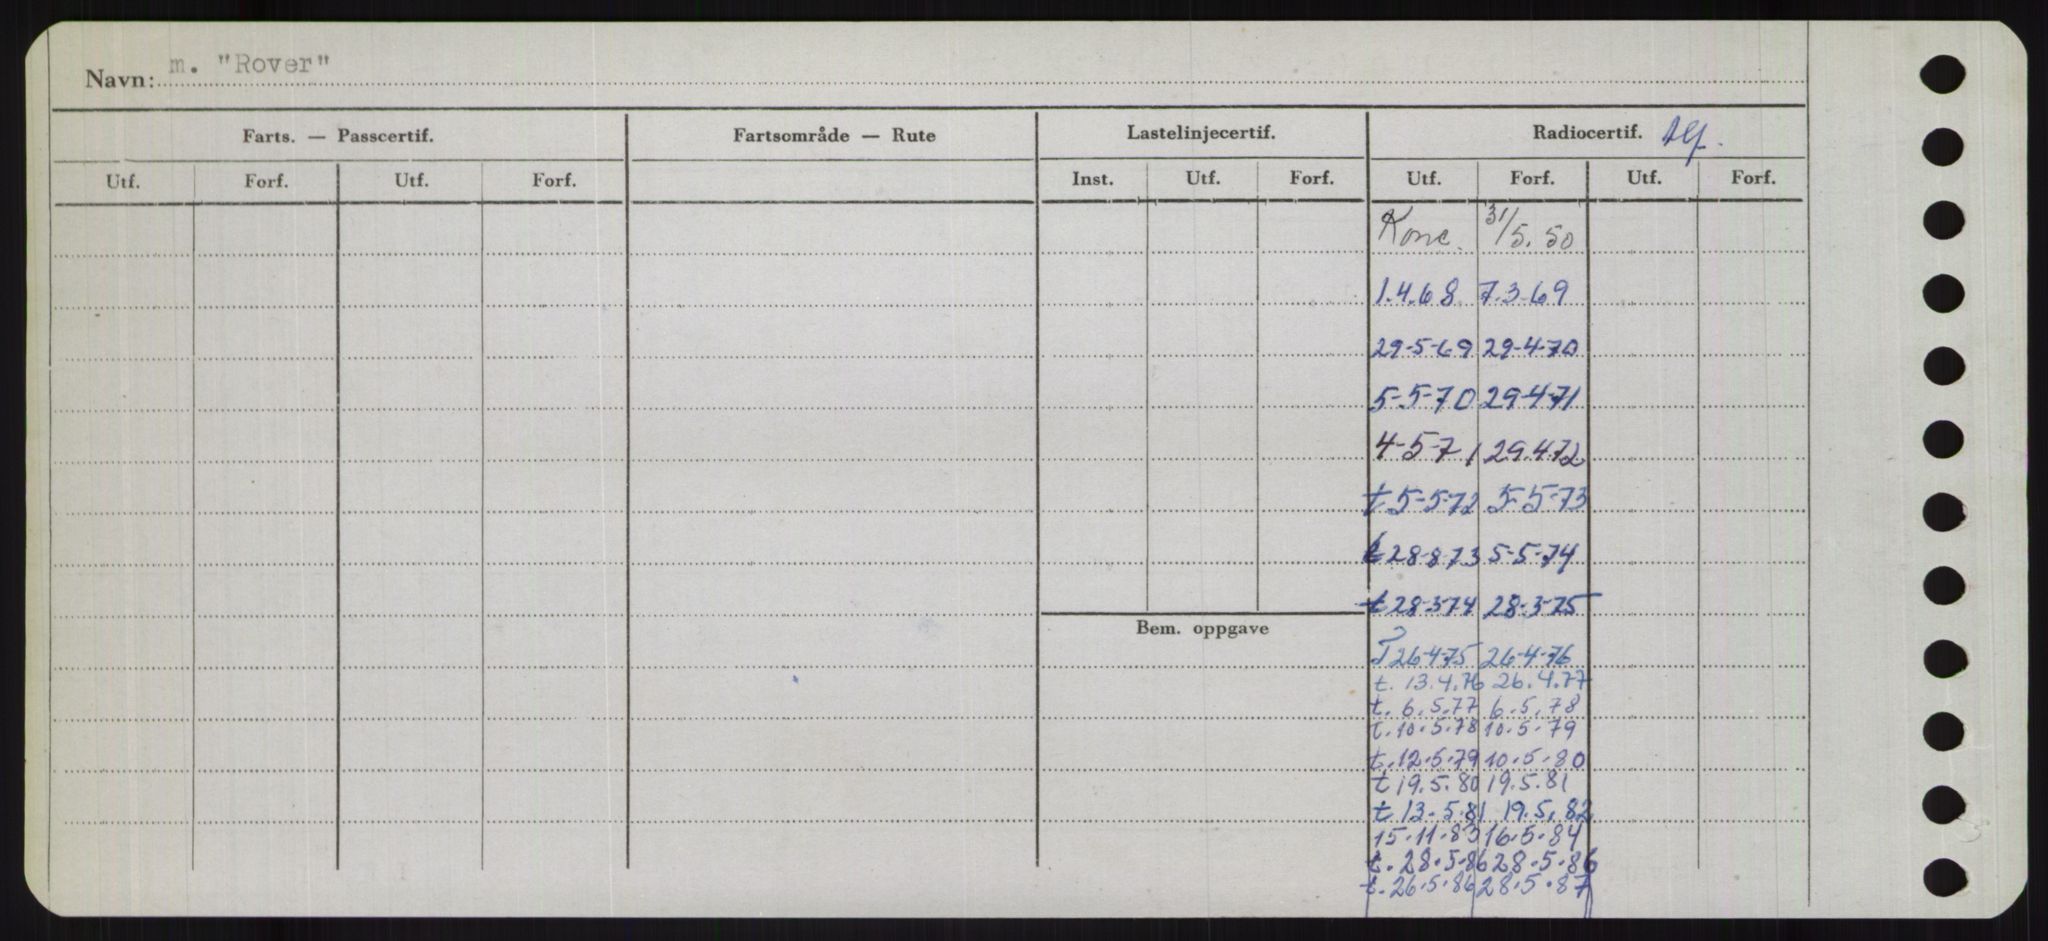 Navn: m. "Rover"
Farts. — Passcertif. Fartsområde — Rute Lastelinjecertif. Radiocertif.
Utf. Forf. Utf. Forf. Inst. Utf. Forf. Utf. Forf. Utf. Forf.
Konc. 31/5. 50
1.4.68 7.3.69
29-5-69 29-4-70
5-5-70 29-4-71
4-5-71 29.4.72
t 5-5-72 5-5-73
t 28-8-73 5-5-74
t 28-3-74 28-3-75
Bem. oppgave
T 26-4-75 26-4-76
t. 13.4.76 26.4.77
t. 6.5.77 6.5.78
t. 10.5.78 10.5.79
t. 12.5.79 10.5.80
t 19.5.80 19.5.81
t 13.5.81 19.5.82
15.11.83 16.5.84
t. 28.5.86 28.5.86
t. 26.5.86 28.5.87